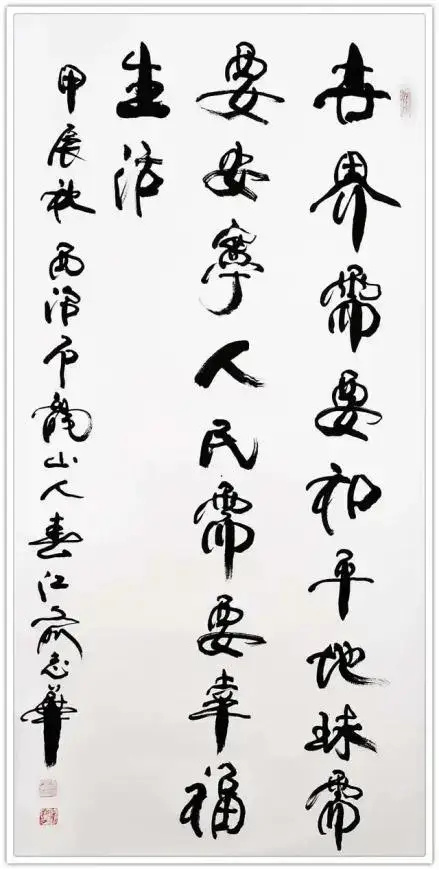 世界需要和平地球需
要安寧人民需要幸福
生活
甲辰秋西泠石龍山人春江俞志華